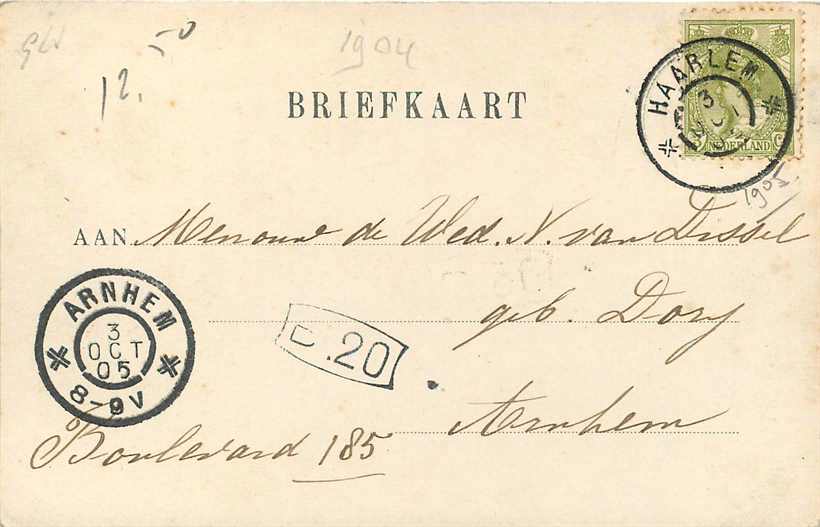 12.50
1904
BRIEFKAART
HAARLEM
3
NEDERLAND
1905
AAN Mevrouw de Wed. N. van Dissel
geb. Dory
Arnhem
Boulevard 185
ARNHEM
3
OCT
05
8-9V
.20